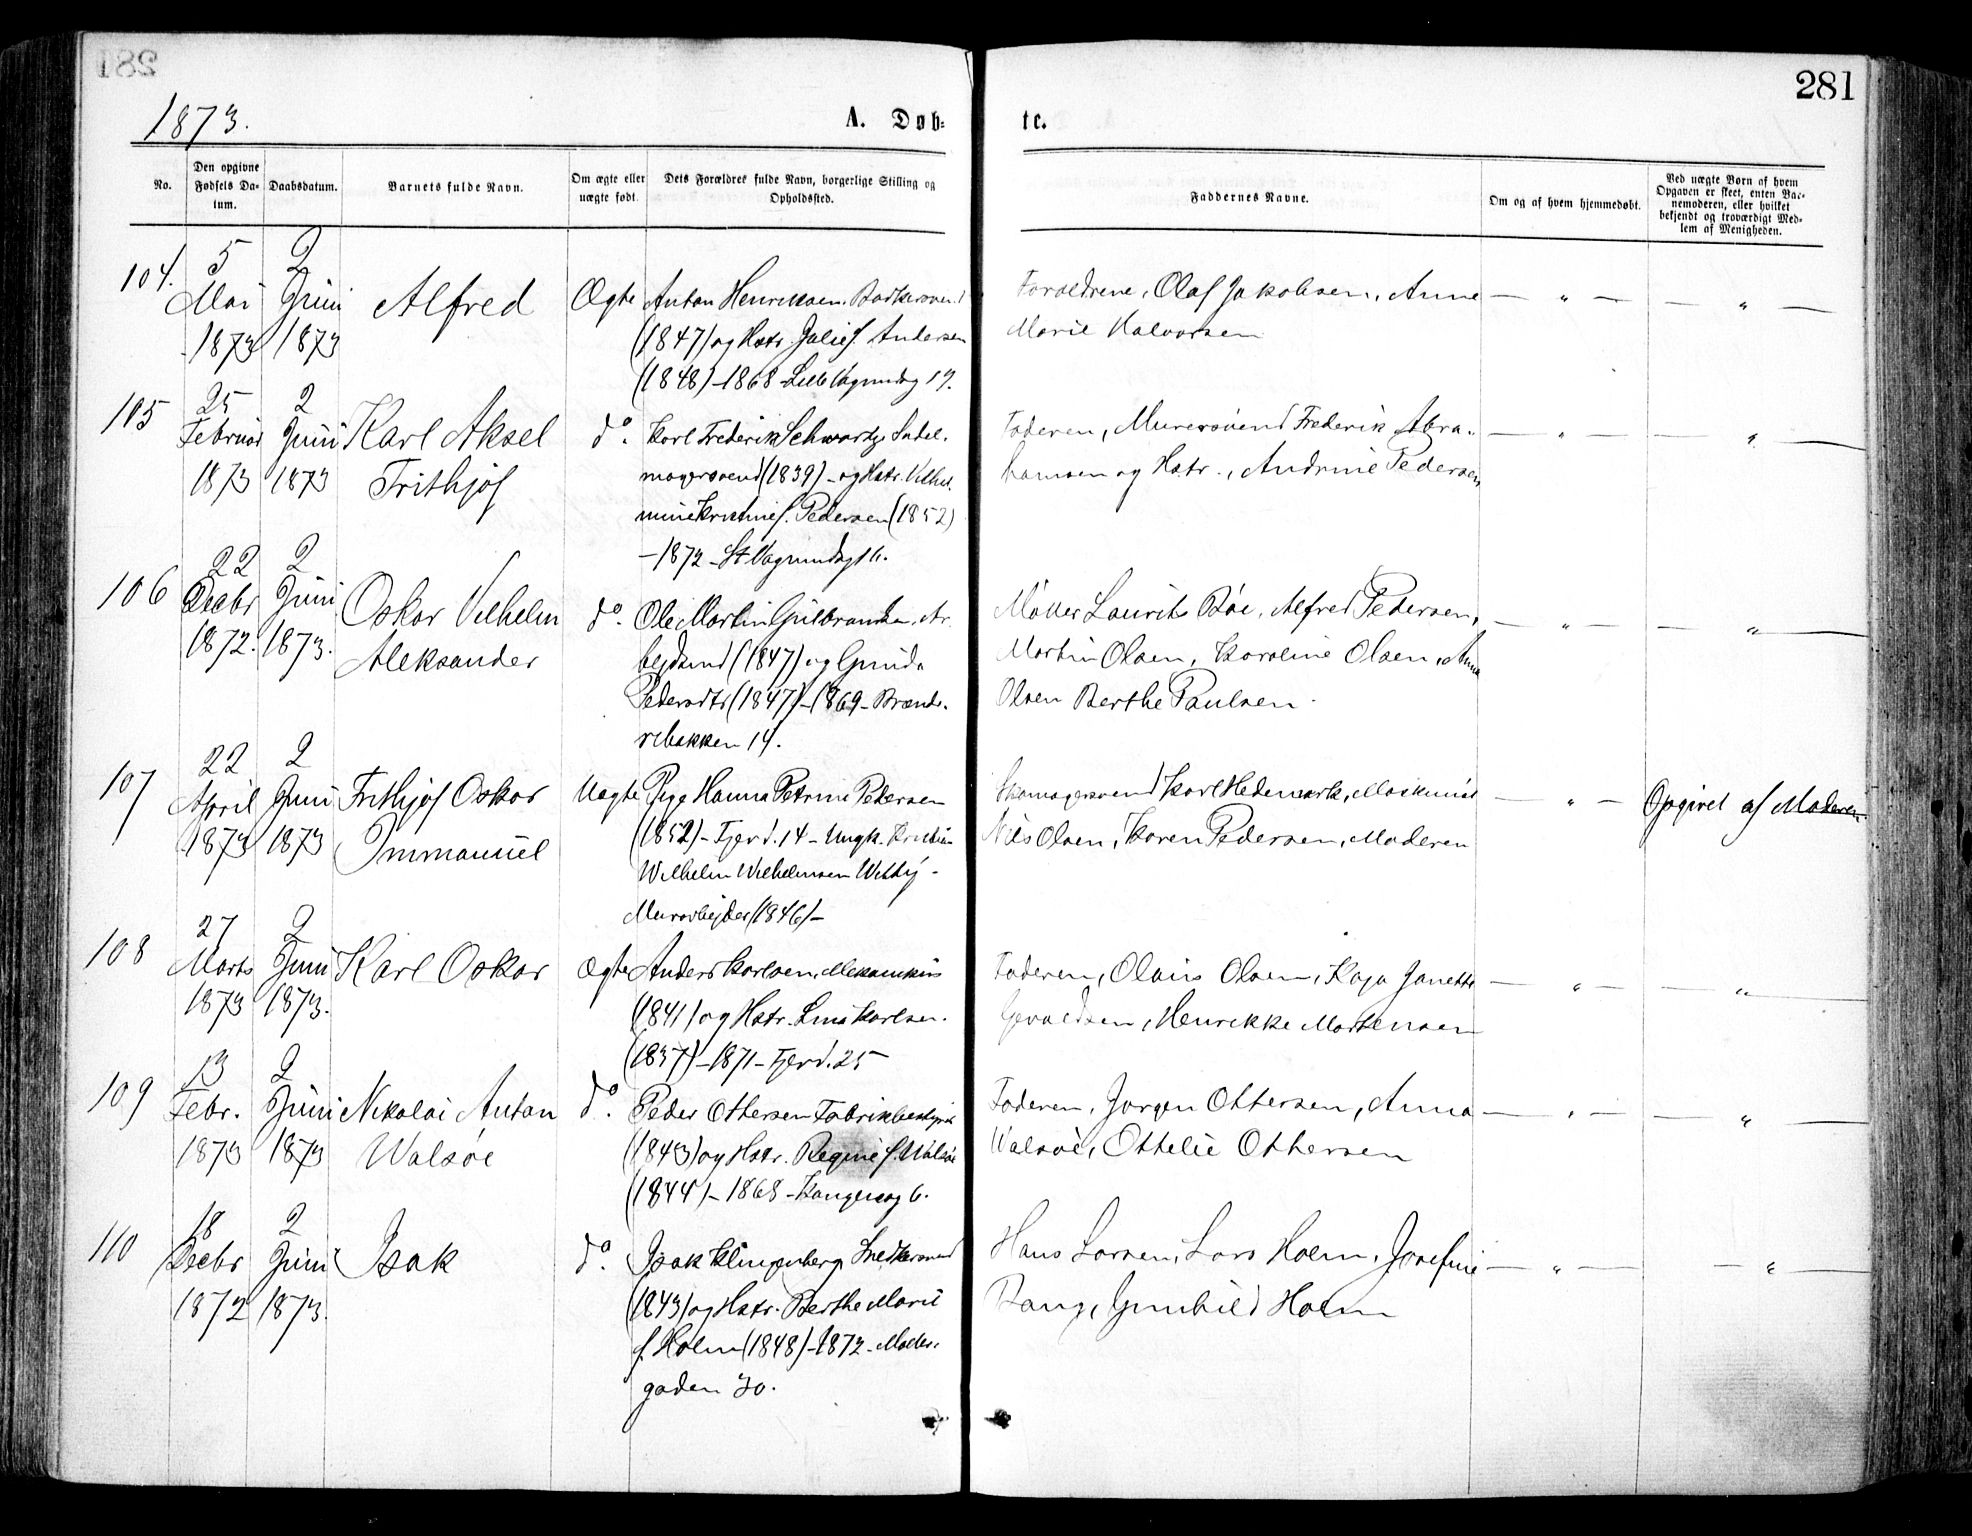 281
1873.
A. Døb=
te.
No.
Den opgivne Fødsels Da-tum.
Daabsdatum.
Barnets fulde Navn.
Om ægte eller uægte født.
Dets Forældres fulde Navn, borgerlige Stilling og Opholdssted.
Faddernes Navne.
Om og af hvem hjemmedøbt.
Ved uægte Børn af hvem Opgaven er skeet, enten Bar-nemoderen, eller hvilket bekjendt og troværdigt Med-lem af Menigheden.
104.
5 Mai 1873
2 Juni 1873
Alfred
Ægte
Anton Henriksen, Bødkersvend
(1847) og Hstr. Julie f. Andersen
(1848) - 1868 - Lille Vognmdg 19.
Forældrene, Olaf Jakobsen, Anne
Marie Halvorsen
— " —
— " —
105
25 Februar 1873
2 Juni 1873
Karl Aksel
Frithjof
do.
Karl Frederik Schwartz, Sadel-
magersvend (1839) - og Hstr. Vilhel-
mine Kristine f. Pedersen (1852)
- 1872 - St Vognmdg 16.
Faderen, Murersvend Frederik Abra-
hamsen og Hstr., Andrine Pedersen
— " —
— " —
106
22 Decbr 1872.
2 Juni 1873.
Oskar Vilhelm
Aleksander
do.
Ole Martin Gulbrandsen, Ar-
bejdsmd (1847) og Gunda
Pedersdtr (1847) - 1869 - Brænde-
ribakken 14.
Møller Laurits Bøe, Alfred Pedersen,
Martin Olsen, Karoline Olsen, Anna
Olsen Berthe Paulsen.
— " —
— " —
107
22 April 1873
2 Juni 1873
Frithjof Oskar
Immanuel
Uægte
Pige Hanna Petrine Pedersen
(1852) - Fjerd. 14 - Ungk. Kristian
Wilhelm Wilhelmsen
Murarbejder (1846) -
Skomagersvend Karl Hedemark, Maskinist
Nils Olsen, Karen Pedersen, Moderen
— " —
Opgivet af Moderen
108
27 Marts 1873
2 Juni 1873.
Karl Oskar
Ægte
Anders Karlsen, Mekanikus
(1841) og Hstr. Lina Karlsen.
(1837) - 1871 - Fjerd. 25
Faderen, Olaus Olsen, Kaja Janette
Gevaldsen, Henrikke Mortensen
— " —
— " —
109
13 Febr. 1873
2 Juni 1873
Nikolai Anton
Walsøe
do.
Peder Ottersen Fabrikbestyrer
(1843) og Hstr. Regine f. Walsøe
(1844) - 1868 - Kongensg 6.
Faderen, Jørgen Ottersen, Anna
Walsøe, Ottelie Ottersen
— " —
— " —
110
18 Decbr 1872
2 Juni 1873.
Isak
do.
Isak Klingenberg, Snedkersvend
(1843) og Hstr. Berthe Marie
f. Holm (1848) - 1872 - Møller-
gaden 30.
Hans Larsen, Lars Holm, Josefine
Bang, Gunhild Holm
— " —
— " —